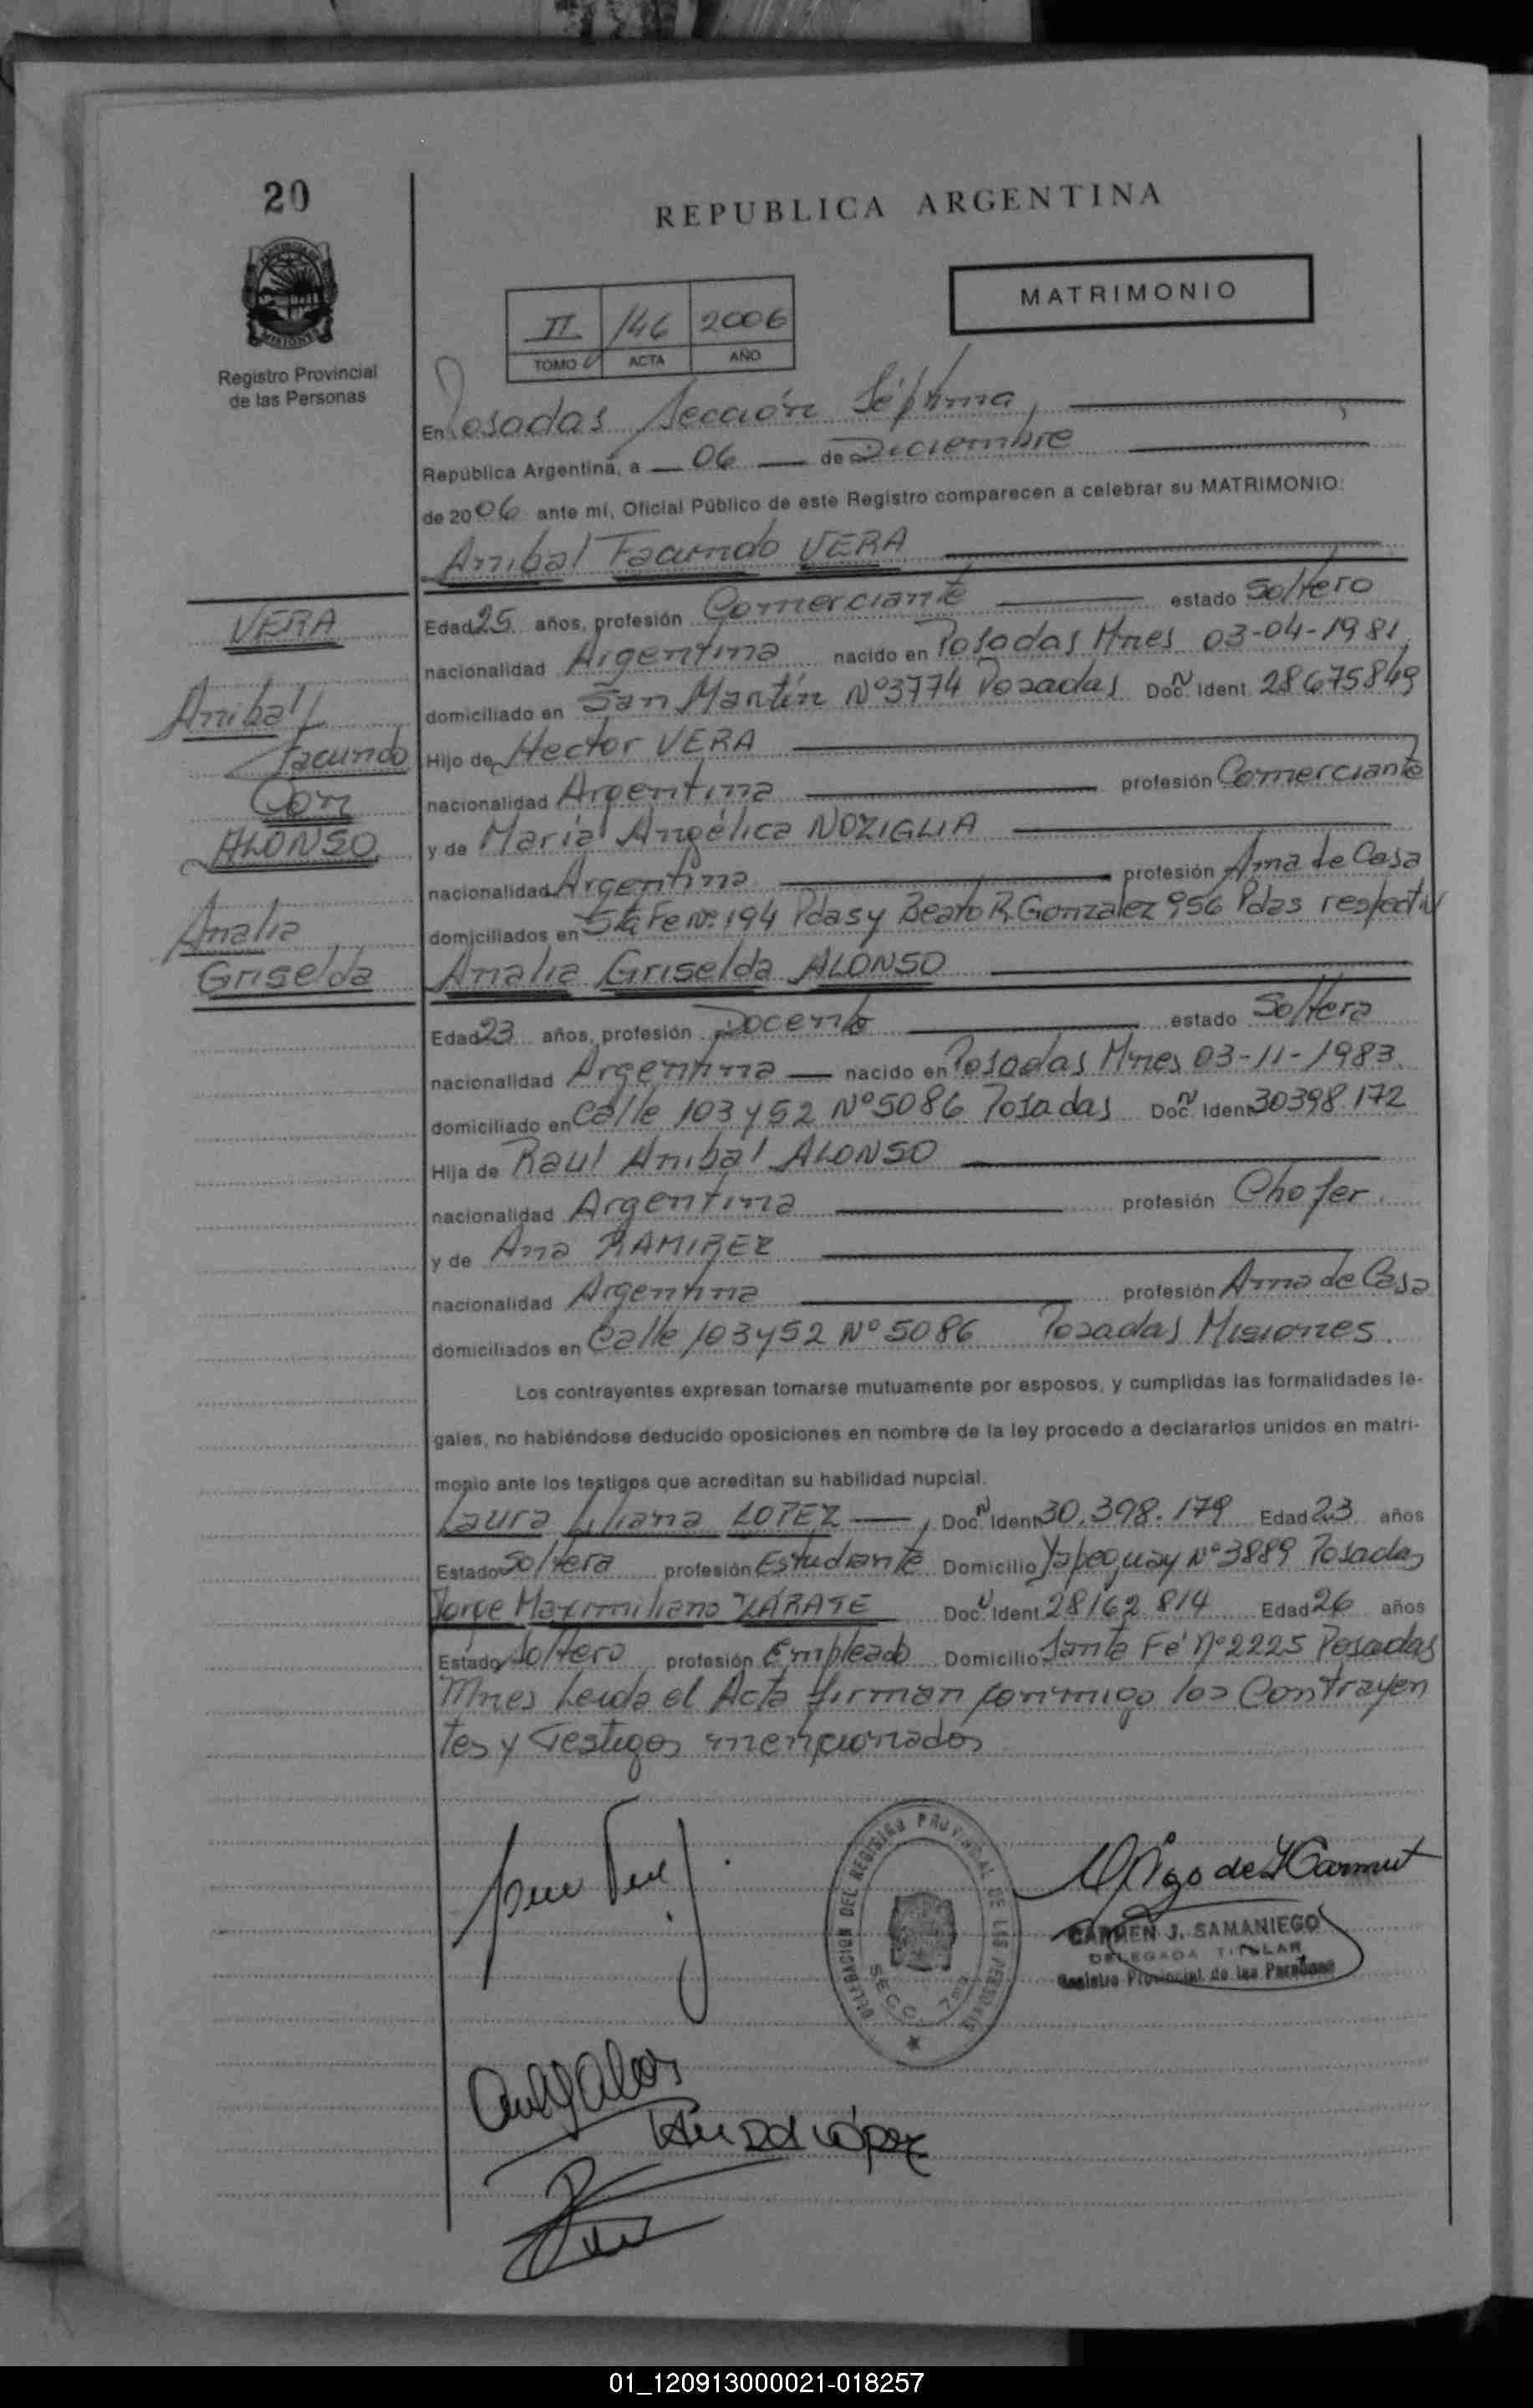 20
REPUBLICA ARGENTINA
MATRIMONIO
II 146 2006
TOMO ACTA AÑO
Registro Provincial
de las Personas
En Posadas Sección Séptima,
República Argentina, a 06 de Diciembre
de 2006 ante mí, Oficial Público de este Registro comparecen a celebrar su MATRIMONIO:
Anibal Facundo VERA
VERA
Anibal
Facundo
Con
ALONSO
Analia
Griselda
Edad 25 años, profesión Comerciante estado Soltero
nacionalidad Argentina nacido en Posadas Mnes 03-04-1981
domiciliado en San Martín Nº 3774 Posadas Doc. N Ident. 28675849
Hijo de Hector VERA
nacionalidad Argentina profesión Comerciante
y de María Angélica NOZIGLIA
nacionalidad Argentina profesión Ama de Casa
domiciliados en Sta Fe Nº 194 Pdas y Beato R. Gonzalez 956 Pdas respectiv
Analia Griselda ALONSO
Edad 23 años, profesión Docente estado Soltera
nacionalidad Argentina nacido en Posadas Mnes 03-11-1983.
domiciliado en Calle 103 y 52 Nº 5086 Posadas Doc. N Ident. 30398.172
Hija de Raul Anibal ALONSO
nacionalidad Argentina profesión Chofer.
y de Ana RAMIREZ
nacionalidad Argentina profesión Ama de Casa
domiciliados en Calle 103 y 52 Nº 5086 Posadas Misiones.
Los contrayentes expresan tomarse mutuamente por esposos, y cumplidas las formalidades le-
gales, no habiéndose deducido oposiciones en nombre de la ley procedo a declararlos unidos en matri-
monio ante los testigos que acreditan su habilidad nupcial.
Laura Liliana LOPEZ, Doc. N Ident. 30.398.179 Edad 23 años
Estado Soltera profesión Estudiante Domicilio Yapeguay Nº 3889 Posadas
Jorge Maximiliano ZÁRATE Doc. N Ident. 28162.814 Edad 26 años
Estado Soltero profesión Empleado Domicilio Santa Fé Nº 2225 Posadas
Mnes Leída el Acta firman conmigo los Contrayen
tes y Testigos mencionados
DELEGACION DEL REGISTRO PROVINCIAL DE LAS PERSONAS
SECC. 7ma
CARMEN J. SAMANIEGO
DELEGADA TITULAR
Registro Provincial de las Personas
Laura López
01_120913000021-018257